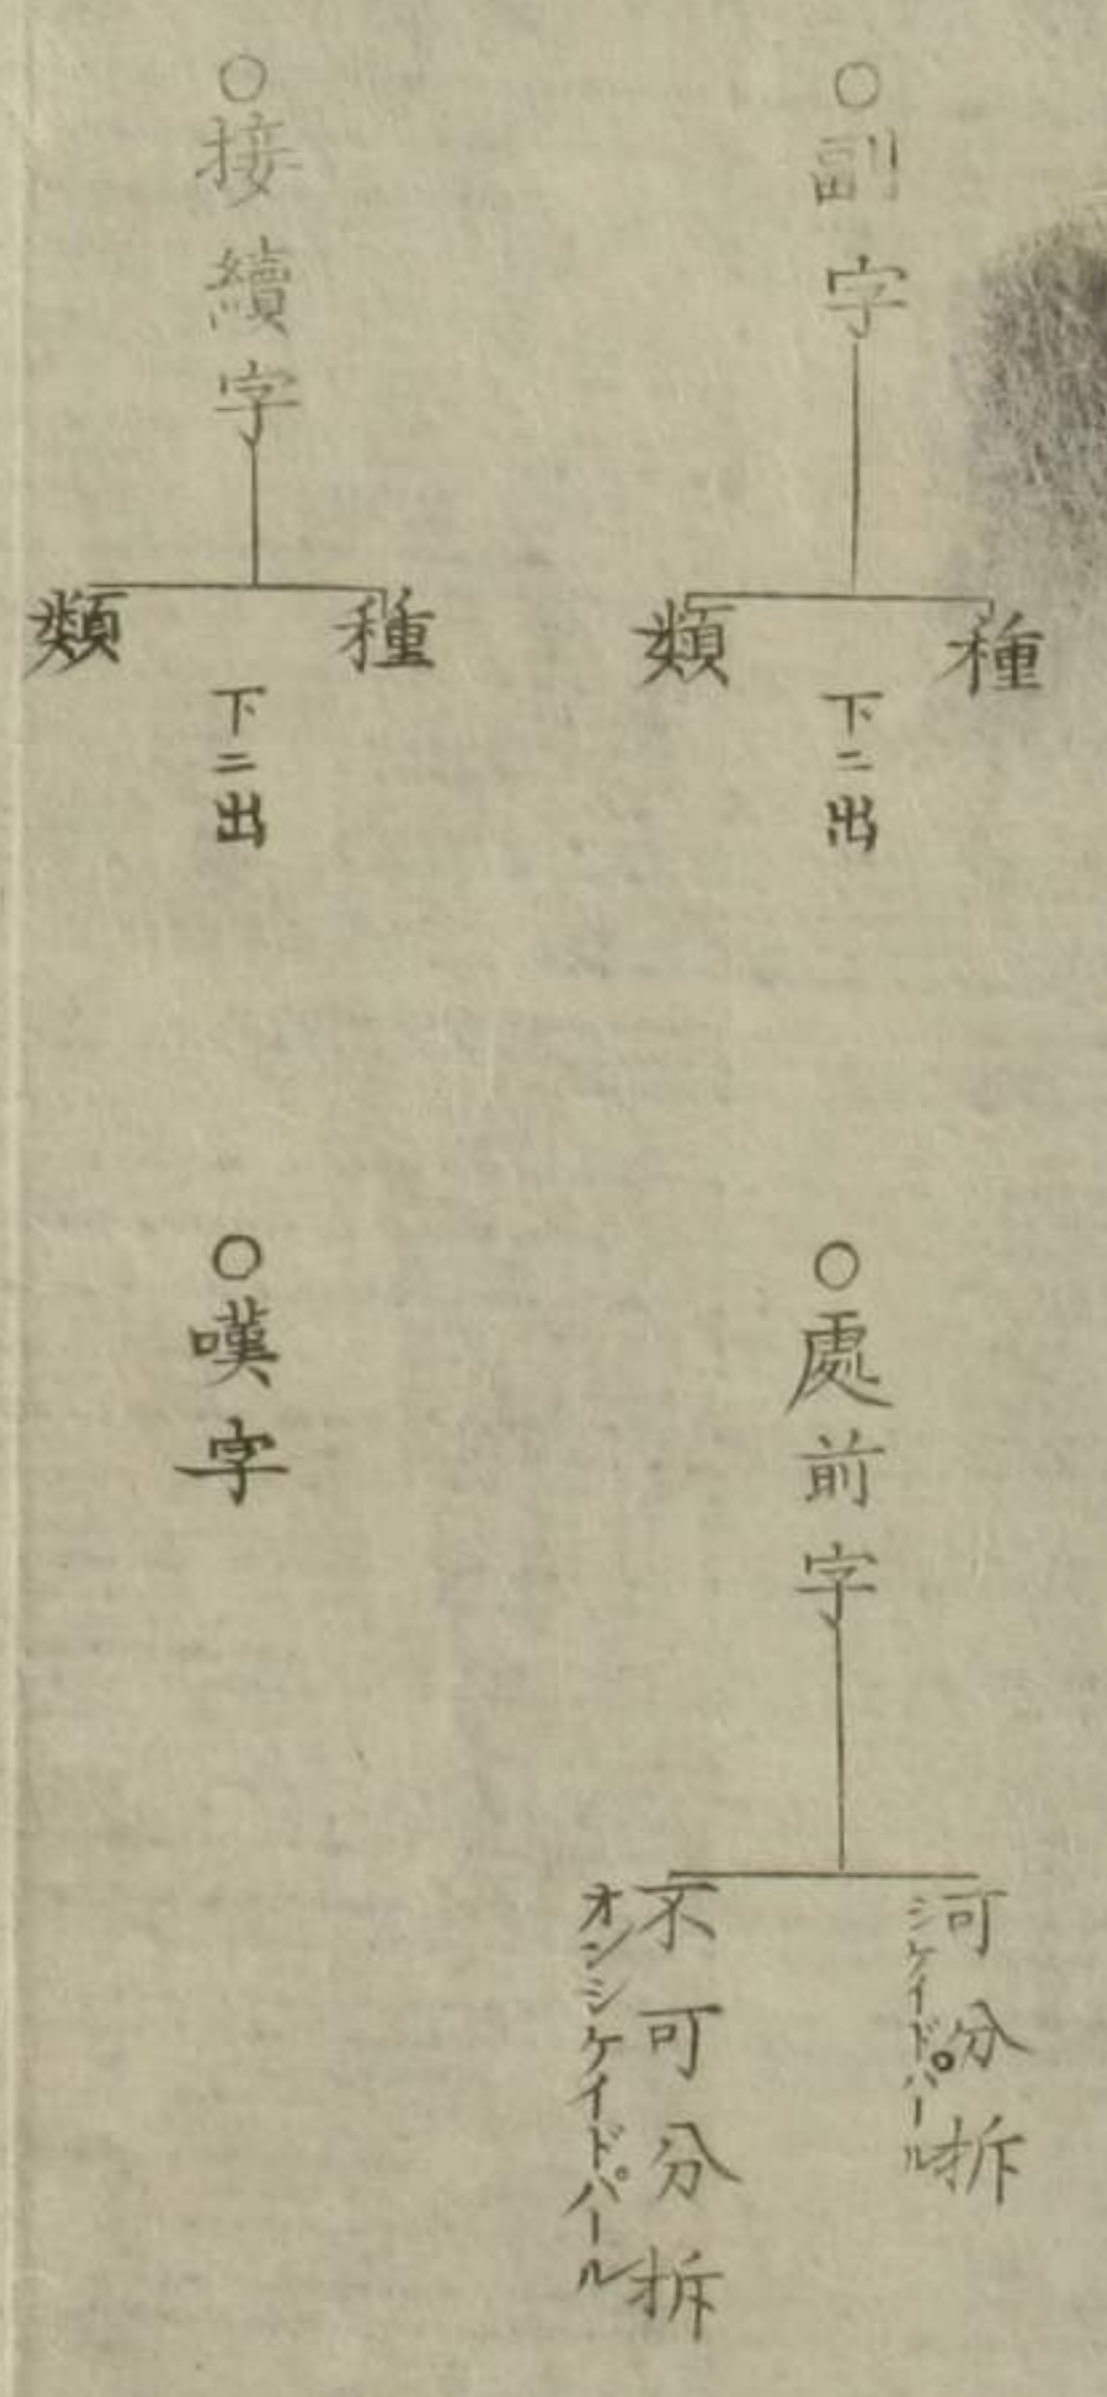 ○副字
種
類
下ニ出
○處前字
可分拆
シケイドパール
不可分拆
オンシケイドパール
○接續字
種
類
下ニ出
○嘆字